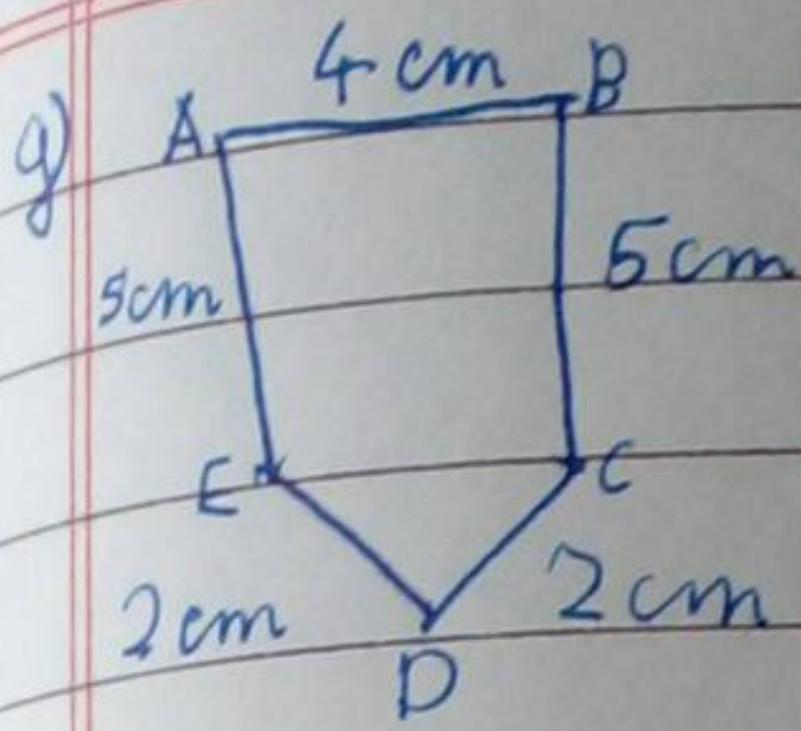 g)
4 cm
A
B
5cm
5cm
E
C
2cm
2cm
D